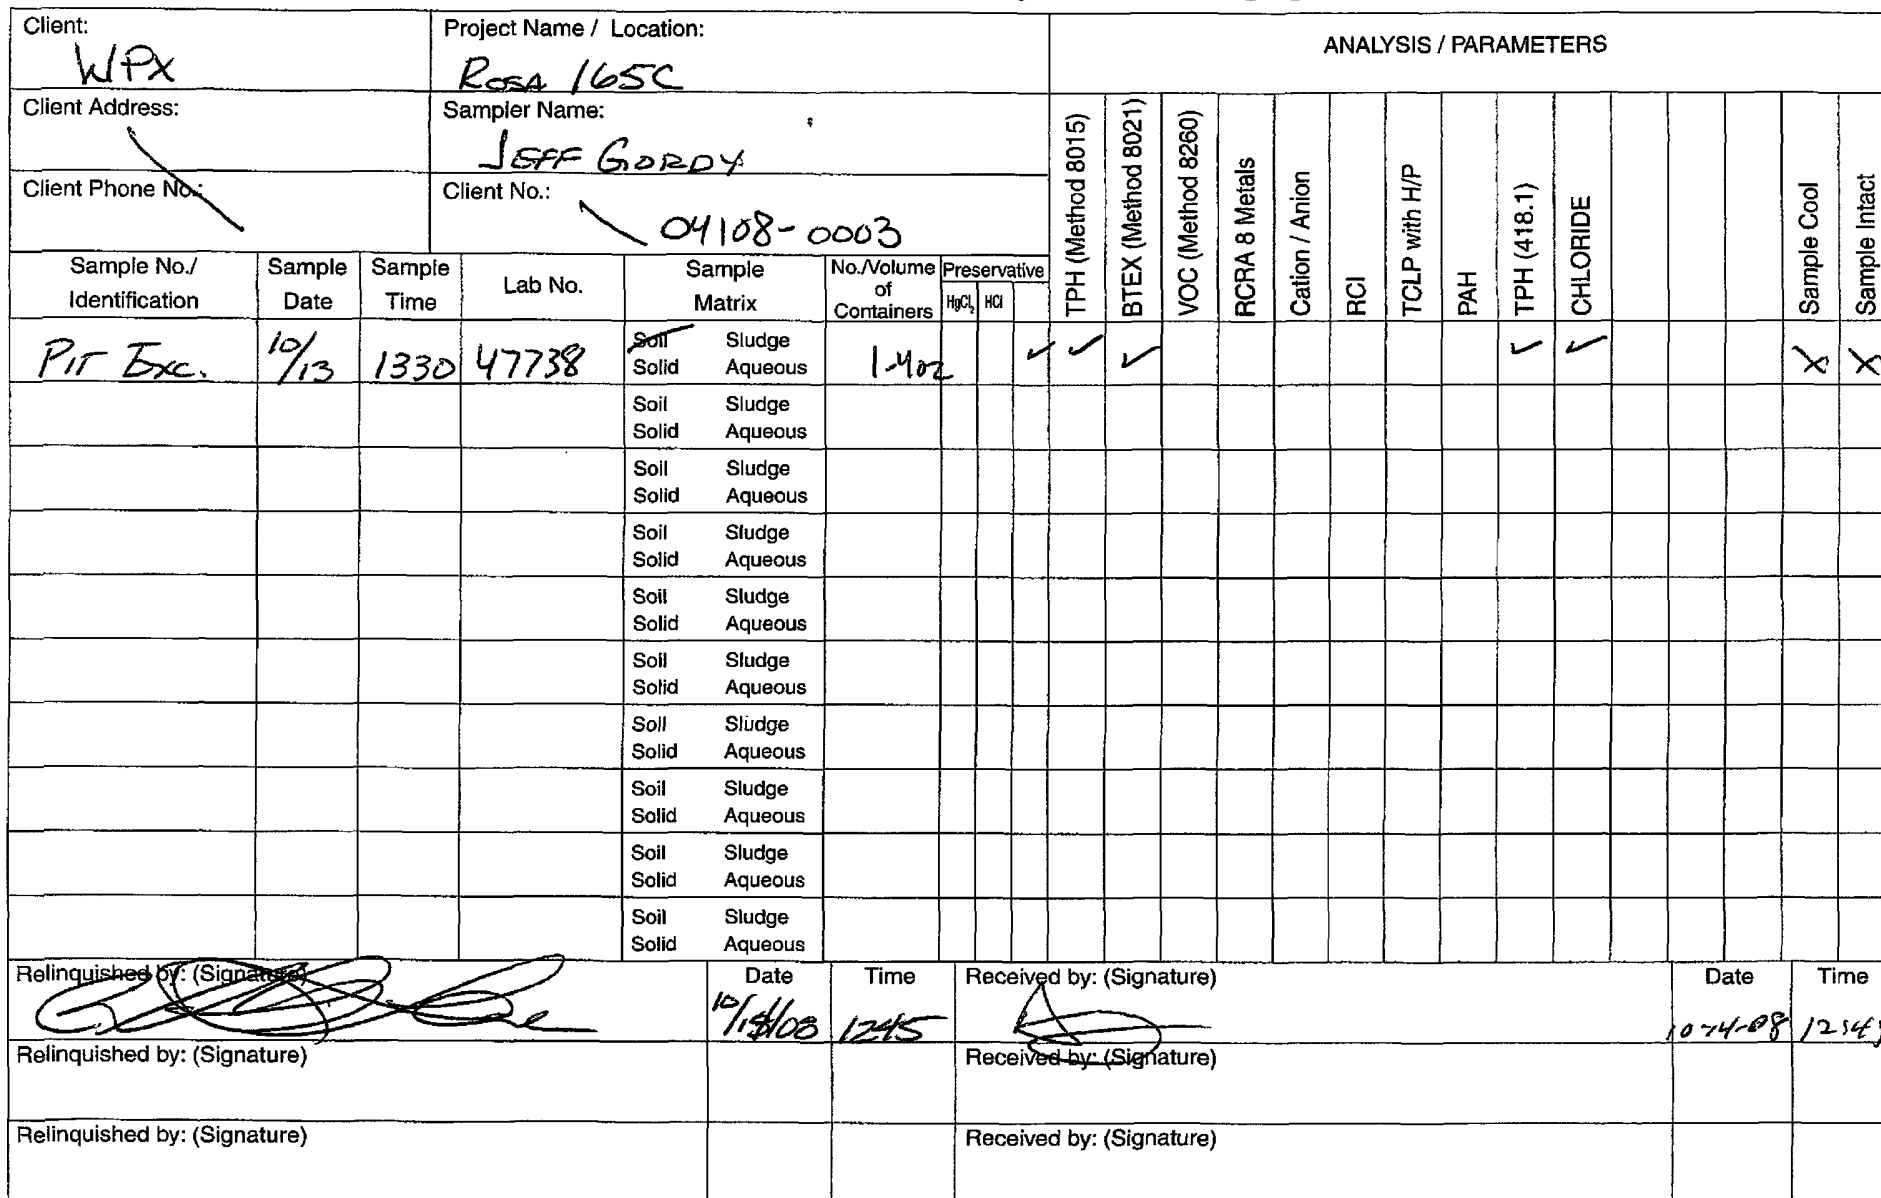 Client:
WPX
Project Name / Location:
ROSA 165C
ANALYSIS / PARAMETERS
Client Address:
Sampler Name:
JEFF GORDY
Client Phone No.:
Client No.:
04108-0003
Sample No./ Identification
Sample Date
Sample Time
Lab No.
Sample Matrix
No./Volume of Containers
Preservative
HgCl₂
HCl
TPH (Method 8015)
BTEX (Method 8021)
VOC (Method 8260)
RCRA 8 Metals
Cation / Anion
RCI
TCLP with H/P
PAH
TPH (418.1)
CHLORIDE
Sample Cool
Sample Intact
PIT EXC. 10/13 1330 47738 Soil Sludge 1-4oz ✓ ✓ ✓ ✓ ✓ X X
Solid Aqueous
Soil Sludge
Solid Aqueous
Soil Sludge
Solid Aqueous
Soil Sludge
Solid Aqueous
Soil Sludge
Solid Aqueous
Soil Sludge
Solid Aqueous
Soil Sludge
Solid Aqueous
Soil Sludge
Solid Aqueous
Soil Sludge
Solid Aqueous
Soil Sludge
Solid Aqueous
Relinquished by: (Signature)
Date
Time
1245
Received by: (Signature)
Date
10-14-08
Time
Relinquished by: (Signature)
Received by: (Signature)
Relinquished by: (Signature)
Received by: (Signature)